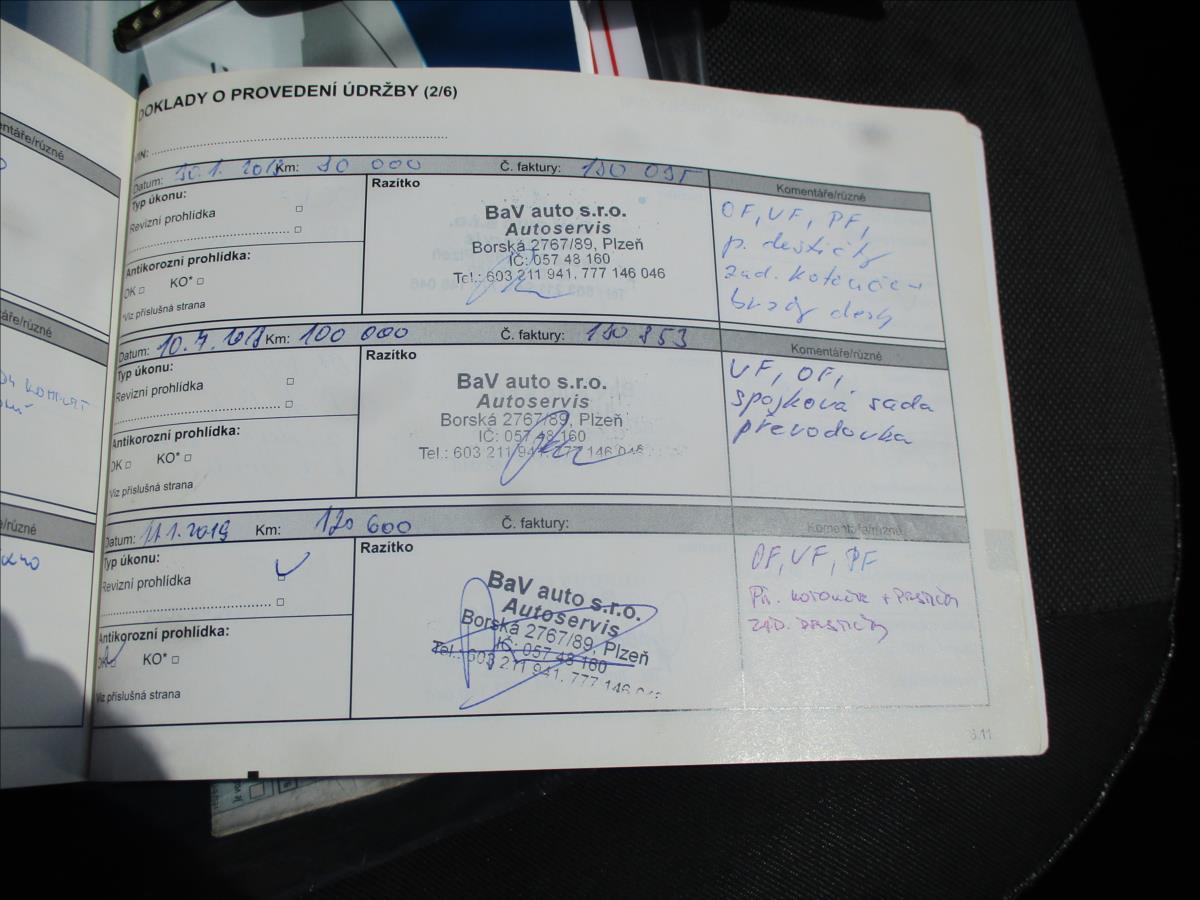 DOKLADY O PROVEDENÍ ÚDRŽBY (2/6)
VIN:
Datum: 30.1. 2018 Km: 90 000 Č. faktury:
Typ úkonu:
Revizní prohlídka
Antikorozní prohlídka:
OK KO*
*Viz příslušná strana
Razítko
BaV auto s.r.o.
Autoservis
Borská 2767/89, Plzeň
IČ: 057 48 160
Tel.: 603 211 941, 777 146 046
Komentáře/různé
OF, VF, PF,
p. destičky
zad. kotouče +
brzdy desty
Datum: 10.7. 2018 Km: 100 000 Č. faktury: 180 853
Typ úkonu:
Revizní prohlídka
Antikorozní prohlídka:
OK KO*
*Viz příslušná strana
Razítko
BaV auto s.r.o.
Autoservis
Borská 2767/89, Plzeň
IČ: 057 48 160
Tel.: 603 211 941, 777 146 046
Komentáře/různé
VF, OF,
spojková sada
převodovka
Datum: 11.1.2019 Km: 120 600 Č. faktury:
Typ úkonu:
Revizní prohlídka
Antikorozní prohlídka:
OK KO*
Viz příslušná strana
Razítko
BaV auto s.r.o.
Autoservis
Borská 2767/89, Plzeň
IČ: 057 48 160
Tel.: 603 211 941, 777 146 046
Komentáře/různé
OF, VF, PF
Př. kotouče +
zad.